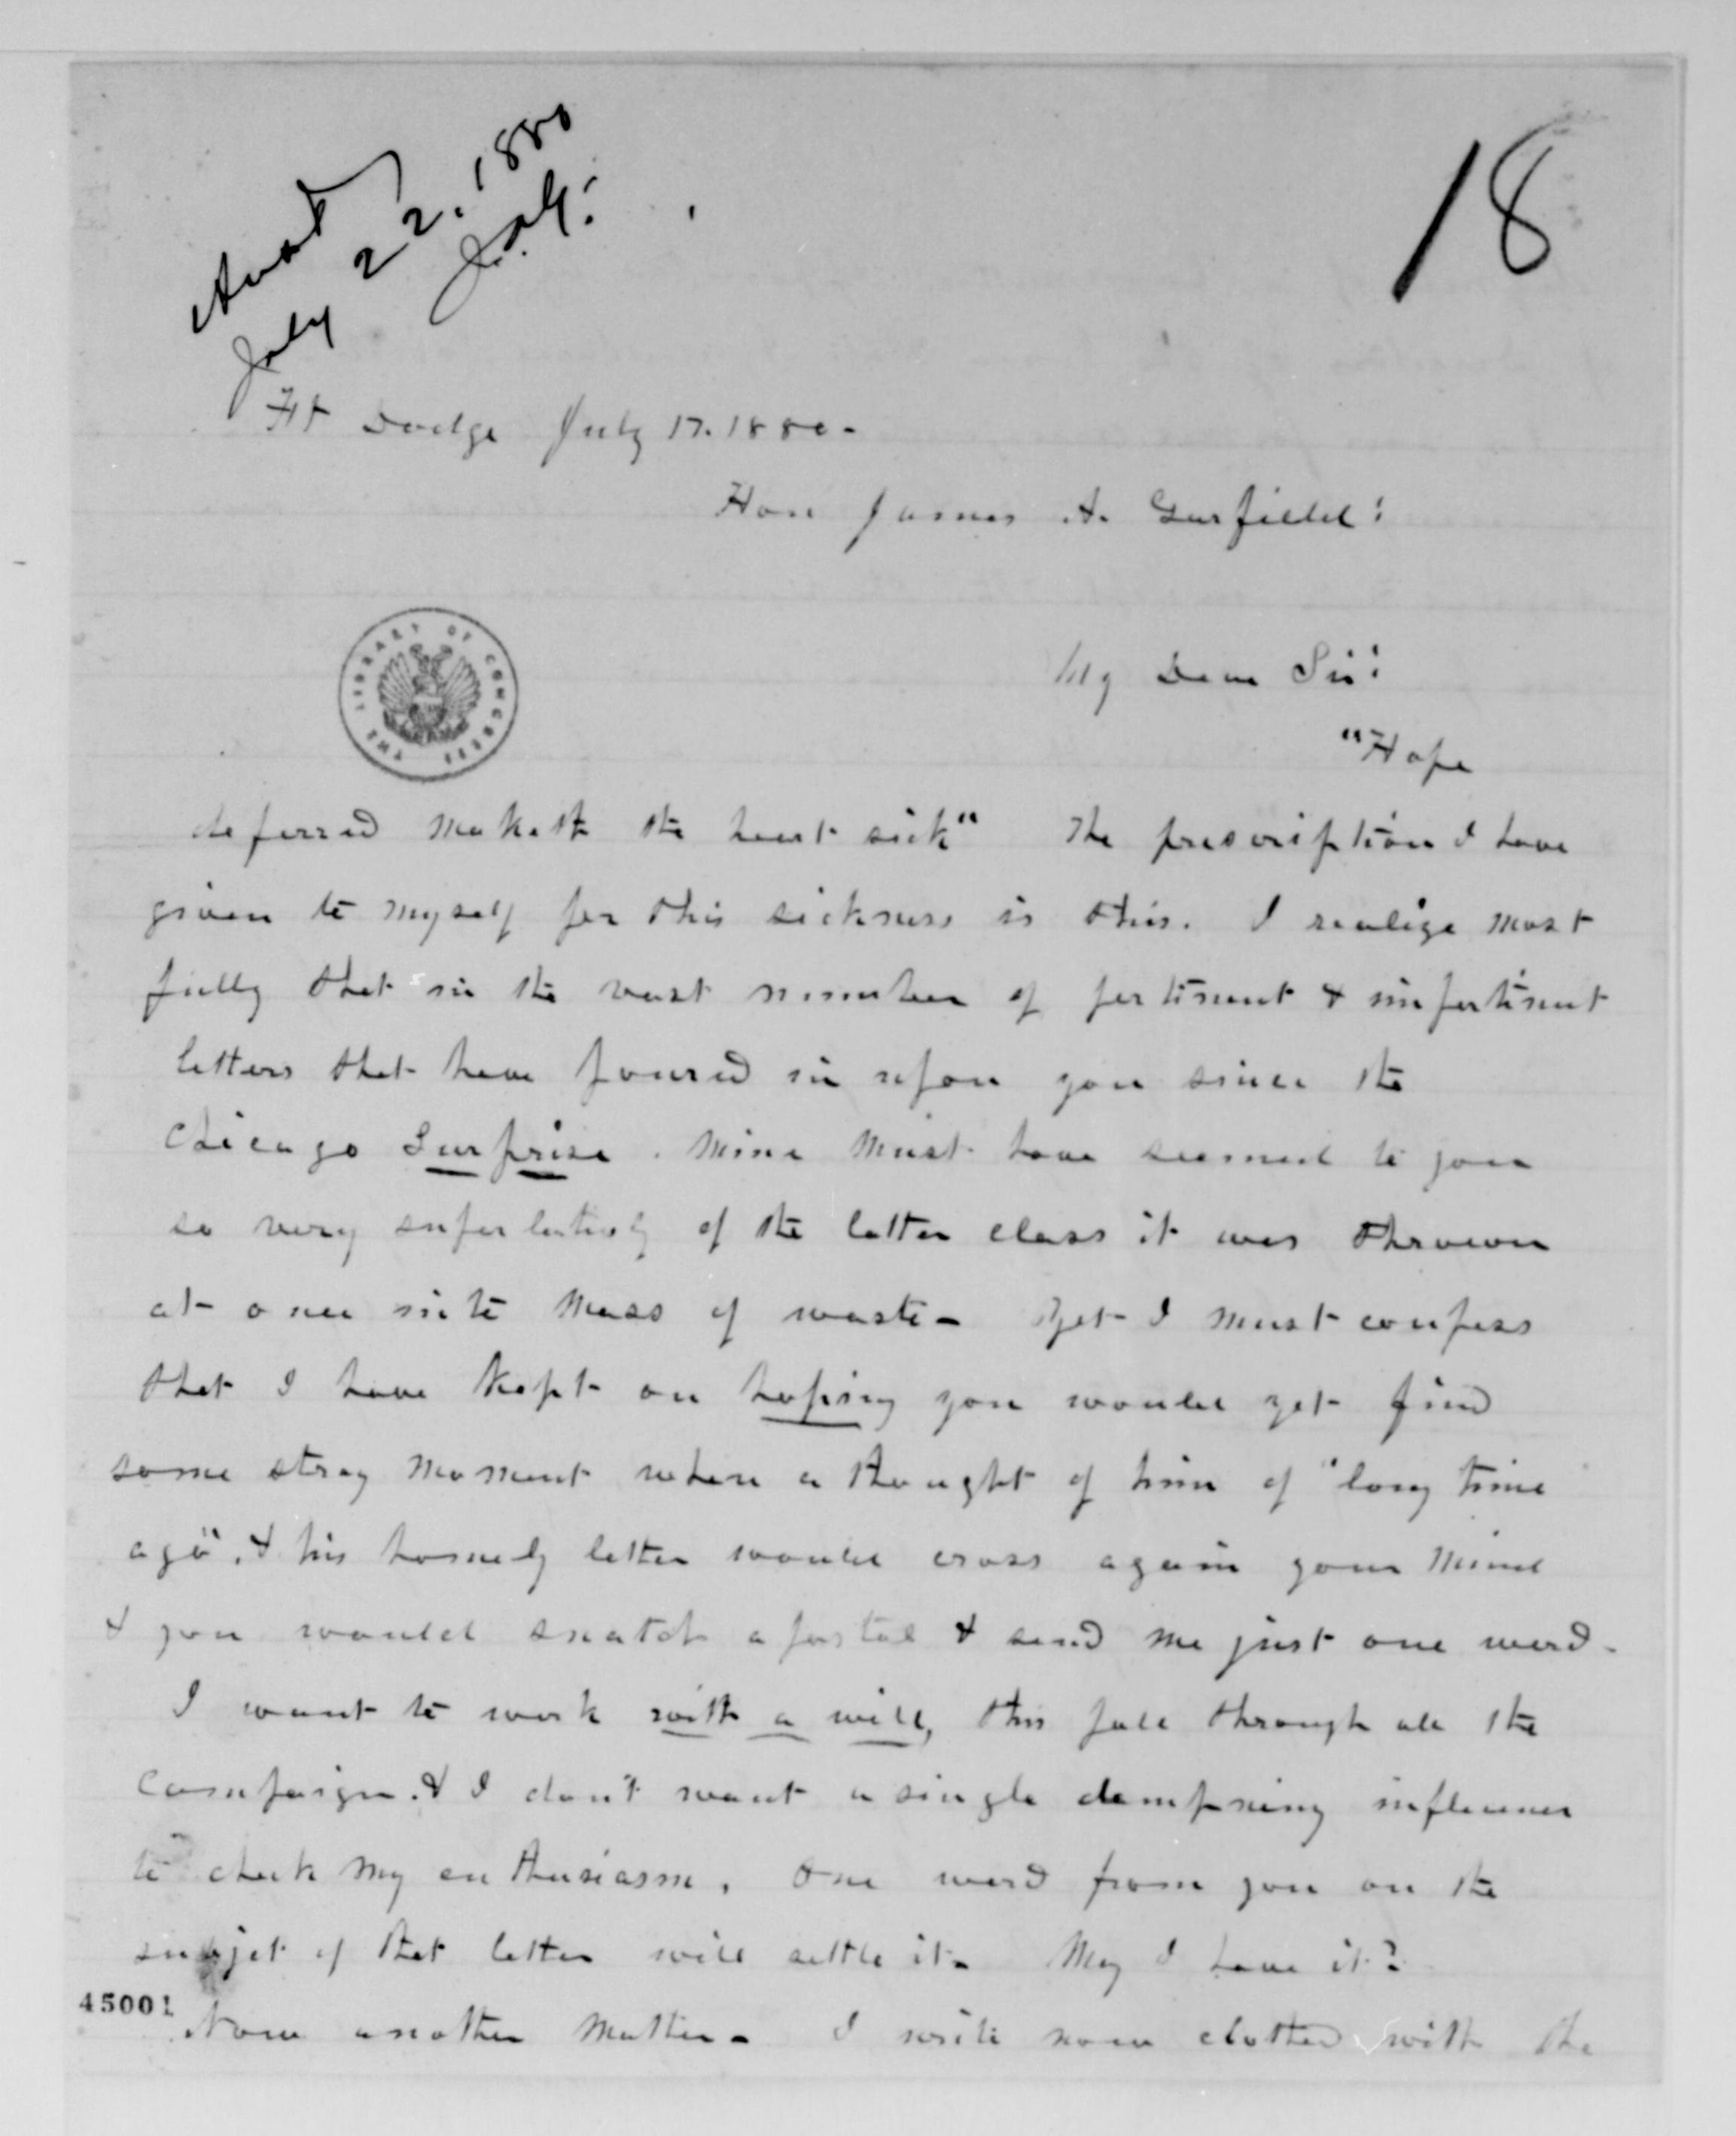 Ansd
July 22, 1880
J.A.G.
18
Ft Dodge July 17. 1880-
Hon James A. Garfield:
THE LIBRARY OF CONGRESS
My Dear Sir:
"Hope
deferred maketh the heart sick" The prescription I have
given to myself for this sickness is this. I realize most
fully that in the vast number of pertinent & impertinent
letters that have poured in upon you since the
Chicago Surprise. Mine must have seemed to you
so very superlatively of the latter class it was thrown
at once into mass of waste- Yet I must confess
that I have kept on hoping you would yet find
some stray moment when a thought of him of "long time
ago", & his homely letter would cross again your mind
& you would snatch a postal & send me just one word-
I want to work with a will, this fall through all the
campaign. & I don't want a single dampning influence
to check my enthusiasm. One word from you on the
subjet of that letter will settle it- May I have it?
45001
Now another matter- I write now clothed with the